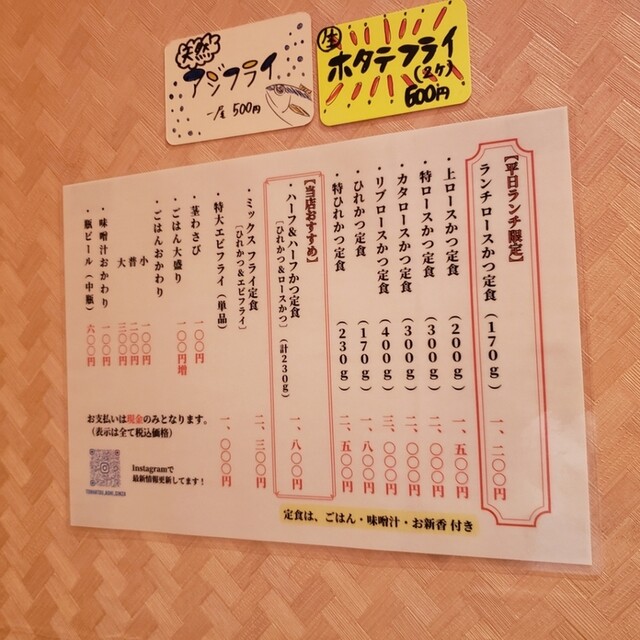 天然
アジフライ
一尾 500円
生
ホタテフライ
(2ケ)
600円
【平日ランチ限定】
ランチロースかつ定食 (170g) 一、二〇〇円
・上ロースかつ定食 (200g) 一、五〇〇円
・特ロースかつ定食 (300g) 二、〇〇〇円
・カタロースかつ定食 (300g) 二、〇〇〇円
・リブロースかつ定食 (400g) 三、〇〇〇円
・ひれかつ定食 (170g) 一、八〇〇円
・特ひれかつ定食 (230g) 二、五〇〇円
【当店おすすめ】
・ハーフ&ハーフかつ定食 (計230g) 一、八〇〇円
[ひれかつ&ロースかつ]
・ミックスフライ定食 二、三〇〇円
[ひれかつ&エビフライ]
・特大エビフライ(単品) 一、〇〇〇円
・茎わさび 一〇〇円
・ごはん大盛り 一〇〇円増
・ごはんおかわり
小 一〇〇円
普 二〇〇円
大 三〇〇円
・味噌汁おかわり 一〇〇円
・瓶ビール(中瓶) 六〇〇円
お支払いは現金のみとなります。
(表示は全て税込価格)
Instagramで
最新情報更新してます!
定食は、ごはん・味噌汁・お新香 付き